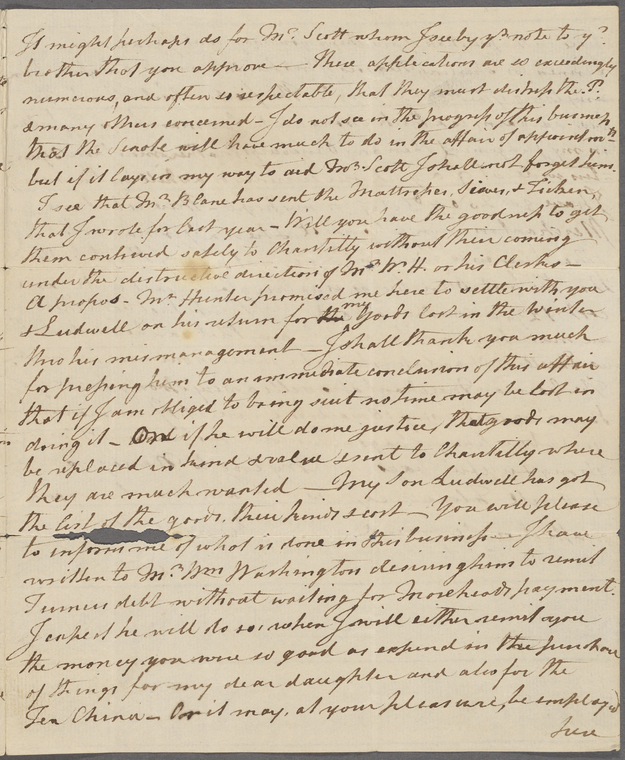 It might perhaps do for Mr. Scott whom I see by yr. note to yr.
brother that you approve — These applications are so exceedingly
numerous, and often so respectable, that they must distress the P.
& many others concerned — I do not see in the progress of this business
that the Senate will have much to do in the affair of appointmts.
but if it lays in my way to aid Mr. Scott I shall not forget him.
I see that Mr. Blane has sent the Mattresses, Sieves, & Ticken,
that I wrote for last year — Will you have the goodness to get
them contrived safely to Chantilly without their coming
under the distructive direction of Mr. W. H. or his Clerks —
A propos — Mr. Hunter promised me here to settle with you
& Ludwell on his return for the my goods lost in the Winter
thro his mismanagement — I shall thank you much
for pressing him to an immediate conclusion of this affair
that if I am obliged to bring suit no time may be lost in
doing it — Or if he will do me justice, that goods may
be replaced in kind & value & sent to Chantilly where
they are much wanted — My Son Ludwell has got
the list of the goods, their kinds & cost — You will please
to inform me of what is done in this business — I have
written to Mr. Wm Washington desiring him to remit
Turners debt without waiting for Moreheads payment.
I expect he will do so, when I will either remit you
the money you were so good as expend in the purchase
of things for my dear daughter and also for the
Tea China — Or it may, at your pleasure, be employed
here